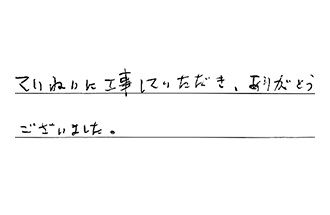 ていねいに工事していただき、ありがとう
ございました。